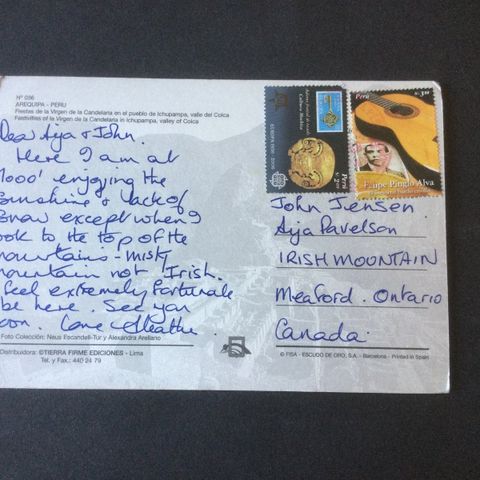 Nº 036
AREQUIPA - PERU
Fiestas de la Virgen de la Candelaria en el pueblo de Ichupampa, valle del Colca
Festivities of the Virgen de la Candelaria in Ichupampa, valley of Colca
Dear Aya & John.
Here I am at
1000' enjoying the
Sunshine & lack of
Snow except when I
look to the top of the
mountains - misty
mountain not Irish.
feel extremely fortunate
be here. See you
soon. Love Heather.
Foto Colección: Neus Escandell-Tur y Alexandra Arellano
Distribuidora: ©TIERRA FIRME EDICIONES - Lima
Tel. y Fax.: 440 24 79
EUROPA 1956 - 2006
Cultura Mochica
Perú
S/. 2.00
Perú
S/. 3.00
Felipe Pinglo Alva
John Jensen.
Aya Pavelson
IRISH MOUNTAIN
Meaford. Ontario
Canada.
© FISA - ESCUDO DE ORO, S.A. - Barcelona - Printed in Spain